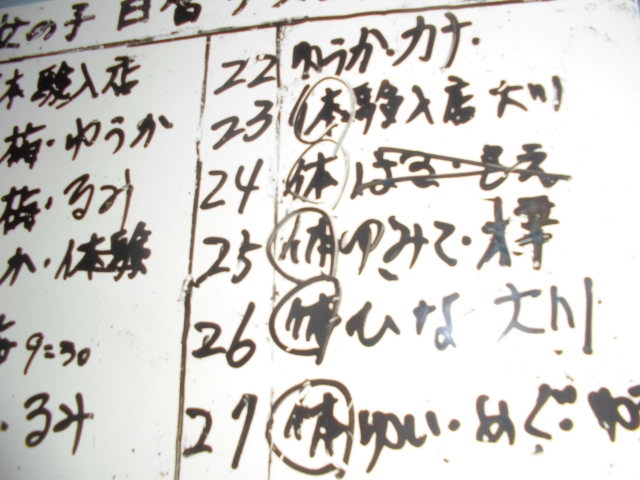 女の子 日
体験入店 22 ゆうか・カナ・
梅・ゆうか 23 体験入店 大川
梅・るみ 24 体
か・体験 25 体 ゆみこ・
9:30 26 体 ひな 大川
・るみ 27 体 ゆい・めぐ・